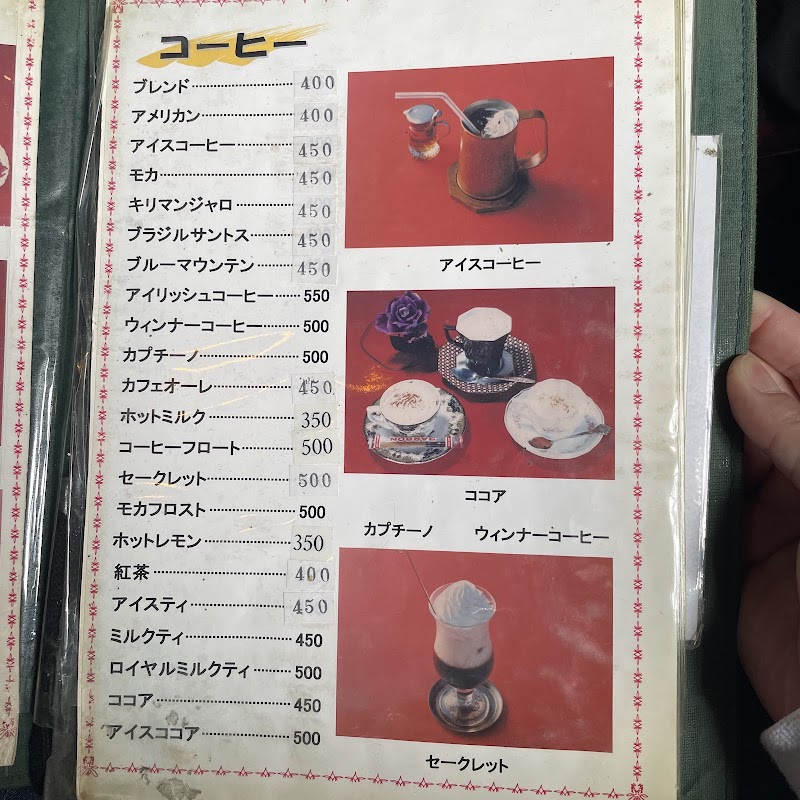 コーヒー
ブレンド……………………400
アメリカン…………………400
アイスコーヒー……………450
モカ…………………………450
キリマンジャロ……………450
ブラジルサントス…………450
ブルーマウンテン…………450
アイリッシュコーヒー……550
ウィンナーコーヒー………500
カプチーノ…………………500
カフェオーレ………………450
ホットミルク………………350
コーヒーフロート…………500
セークレット………………500
モカフロスト………………500
ホットレモン………………350
紅茶…………………………400
アイスティ…………………450
ミルクティ…………………450
ロイヤルミルクティ………500
ココア………………………450
アイスココア………………500
アイスコーヒー
ココア
カプチーノ ウィンナーコーヒー
セークレット